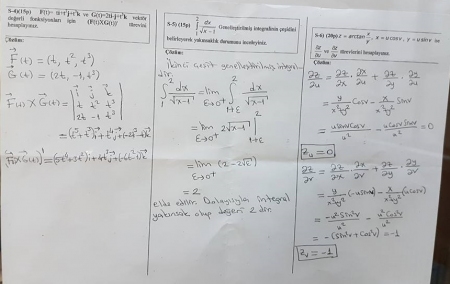 S-4)(15p) F(t)= ti+t²j+t³k ve G(t)=2ti-j+t³k vektör
değerli fonksiyonları için (F(t)XG(t))' türevini
hesaplayınız.
Çözüm:
F(t) = (t, t², t³)
G(t) = (2t, -1, t³)
F(t) X G(t) = | i j k |
| t t² t³ |
| 2t -1 t³ |
S-5) (15p) ∫₁² dx/√(x-1) Genelleştirilmiş integralinin çeşidini
belirleyerek yakınsaklık durumunu inceleyiniz.
Çözüm:
İkinci çeşit genelleştirilmiş integral-
dir.
∫₁² dx/√(x-1) = lim ε→0⁺ ∫₁₊ε² dx/√(x-1)
= lim ε→0⁺ 2√(x-1) |₁₊ε²
= lim ε→0⁺ (2-2√ε)
= 2
elde edilir. Dolayısıyla integral
yakınsak olup değeri 2 dir.
S-6) (20p) z = arctan x/y, x = u cos v, y = u sin v ise
∂z/∂u ve ∂z/∂v türevlerini hesaplayınız.
Çözüm:
∂z/∂u = ∂z/∂x · ∂x/∂u + ∂z/∂y · ∂y/∂u
= y/(x²+y²) Cosv - x/(x²+y²) Sinv
= uSinvCosv/u² - uCosvSinv/u² = 0
Zu = 0
∂z/∂v = ∂z/∂x · ∂x/∂v + ∂z/∂y · ∂y/∂v
= y/(x²+y²) (-uSinv) - x/(x²+y²) (uCosv)
= -u²Sin²v/u² - u²Cos²v/u²
= -(Sin²v + Cos²v) = -1
Zv = -1